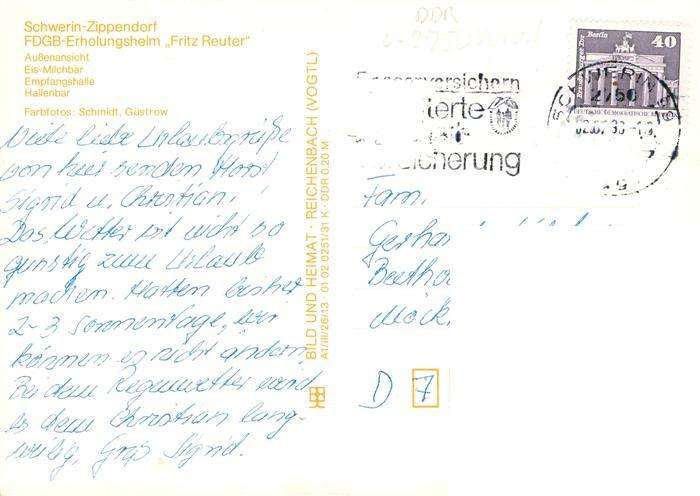 Schwerin-Zippendorf
FDGB-Erholungsheim „Fritz Reuter“
Außenansicht
Eis-Milchbar
Empfangshalle
Hallenbar
Farbfotos: Schmidt, Güstrow
Viele liebe Urlaubsgrüße
von hier senden Horst
Sigrid u. Christian!
Das Wetter ist nicht so
günstig zum Urlaub
machen. Hatten bisher
2-3 Sonnentage, wir
können es nicht ändern.
Bei dem Regenwetter wird
es dem Christian lang-
weilig, Gruß Sigrid.
BILD UND HEIMAT · REICHENBACH (VOGTL)
A1/III/26/13 · 01 02 0251/31 K · DDR 0,20 M
DDR
versichern
ierte
sicherung
Brandenburger Tor Berlin
40
DEUTSCHE DEMOKRATISCHE
SCHWERIN
2750
Fam.
Gerha
Beetho
Möck.
D 7